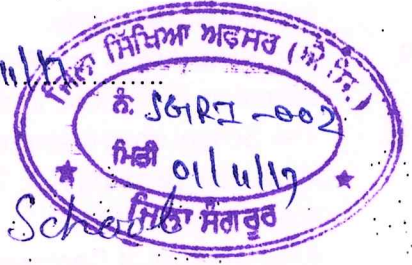 ਜਿਲਾ ਸਿੱਖਿਆ ਅਫਸਰ (ਐ.ਸਿ.)
ਨੰ. SGRI-002
ਮਿਤੀ 01/4/17
ਜਿਲਾ ਸੰਗਰੂਰ
School